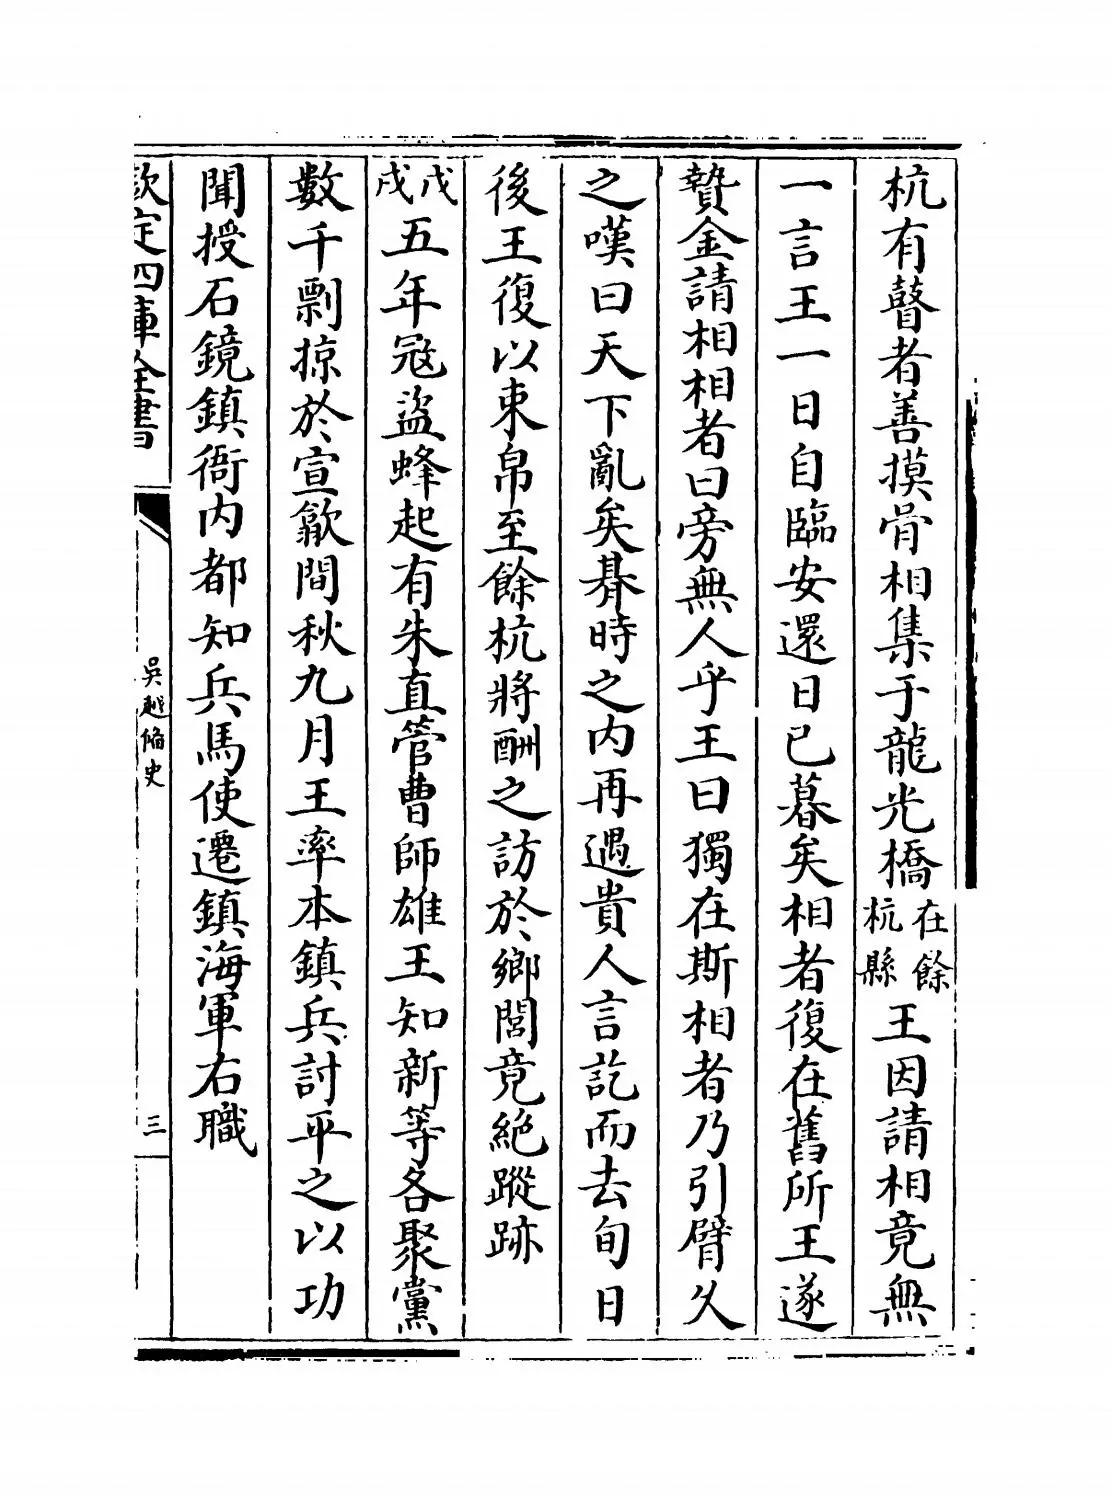 杭有瞽者善摸骨相集于龍光橋在餘杭縣王因請相竟無
一言王一日自臨安還日已暮矣相者復在舊所王遂
贄金請相相者曰旁無人乎王曰獨在斯相者乃引臂久
之嘆曰天下亂矣朞時之内再遇貴人言訖而去旬日
後王復以束帛至餘杭將酬之訪於鄉閭竟絶蹤跡
戊戌五年冦盜蜂起有朱直管曹師雄王知新等各聚黨
數千剽掠於宣歙間秋九月王率本鎮兵討平之以功
聞授石鏡鎮衙内都知兵馬使遷鎮海軍右職
欽定四庫全書
吳越備史
三